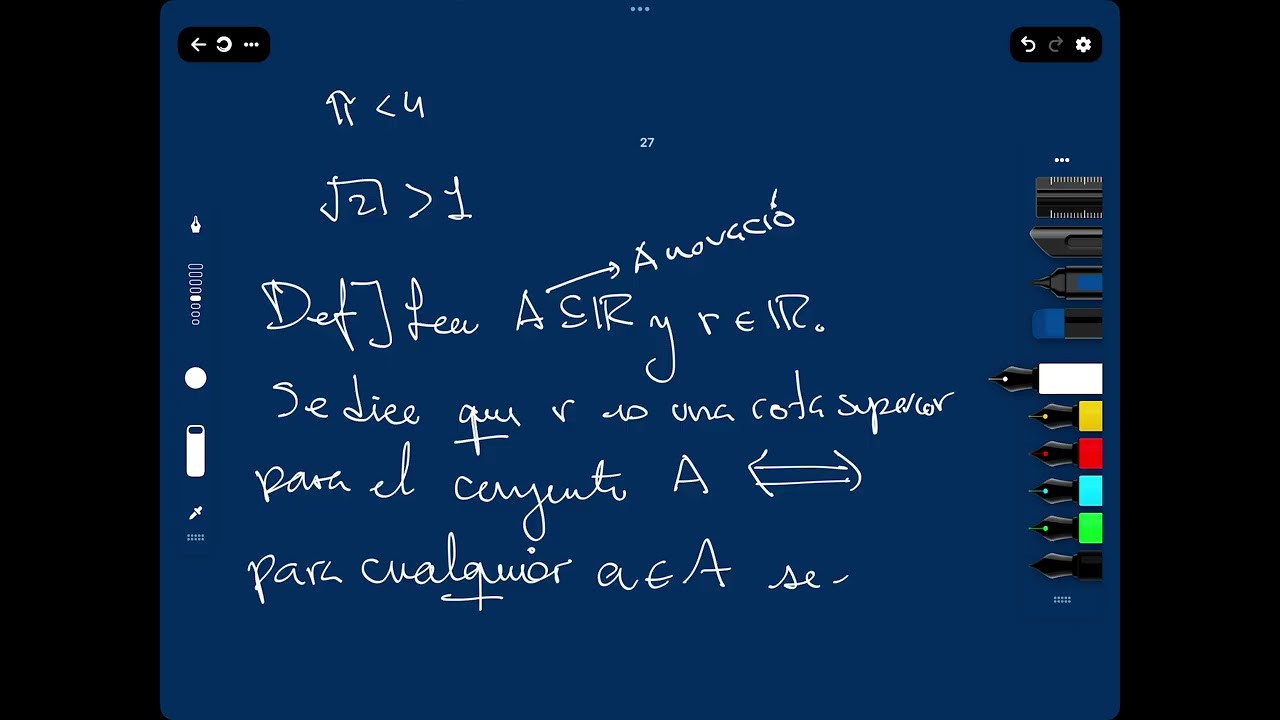 π < 4
27
√2 > 1
A no vació
Def] Sea A ⊆ ℝ y r ∈ ℝ.
Se dice que r es una cota superior
para el conjunto A ⟺
para cualquier a ∈ A se